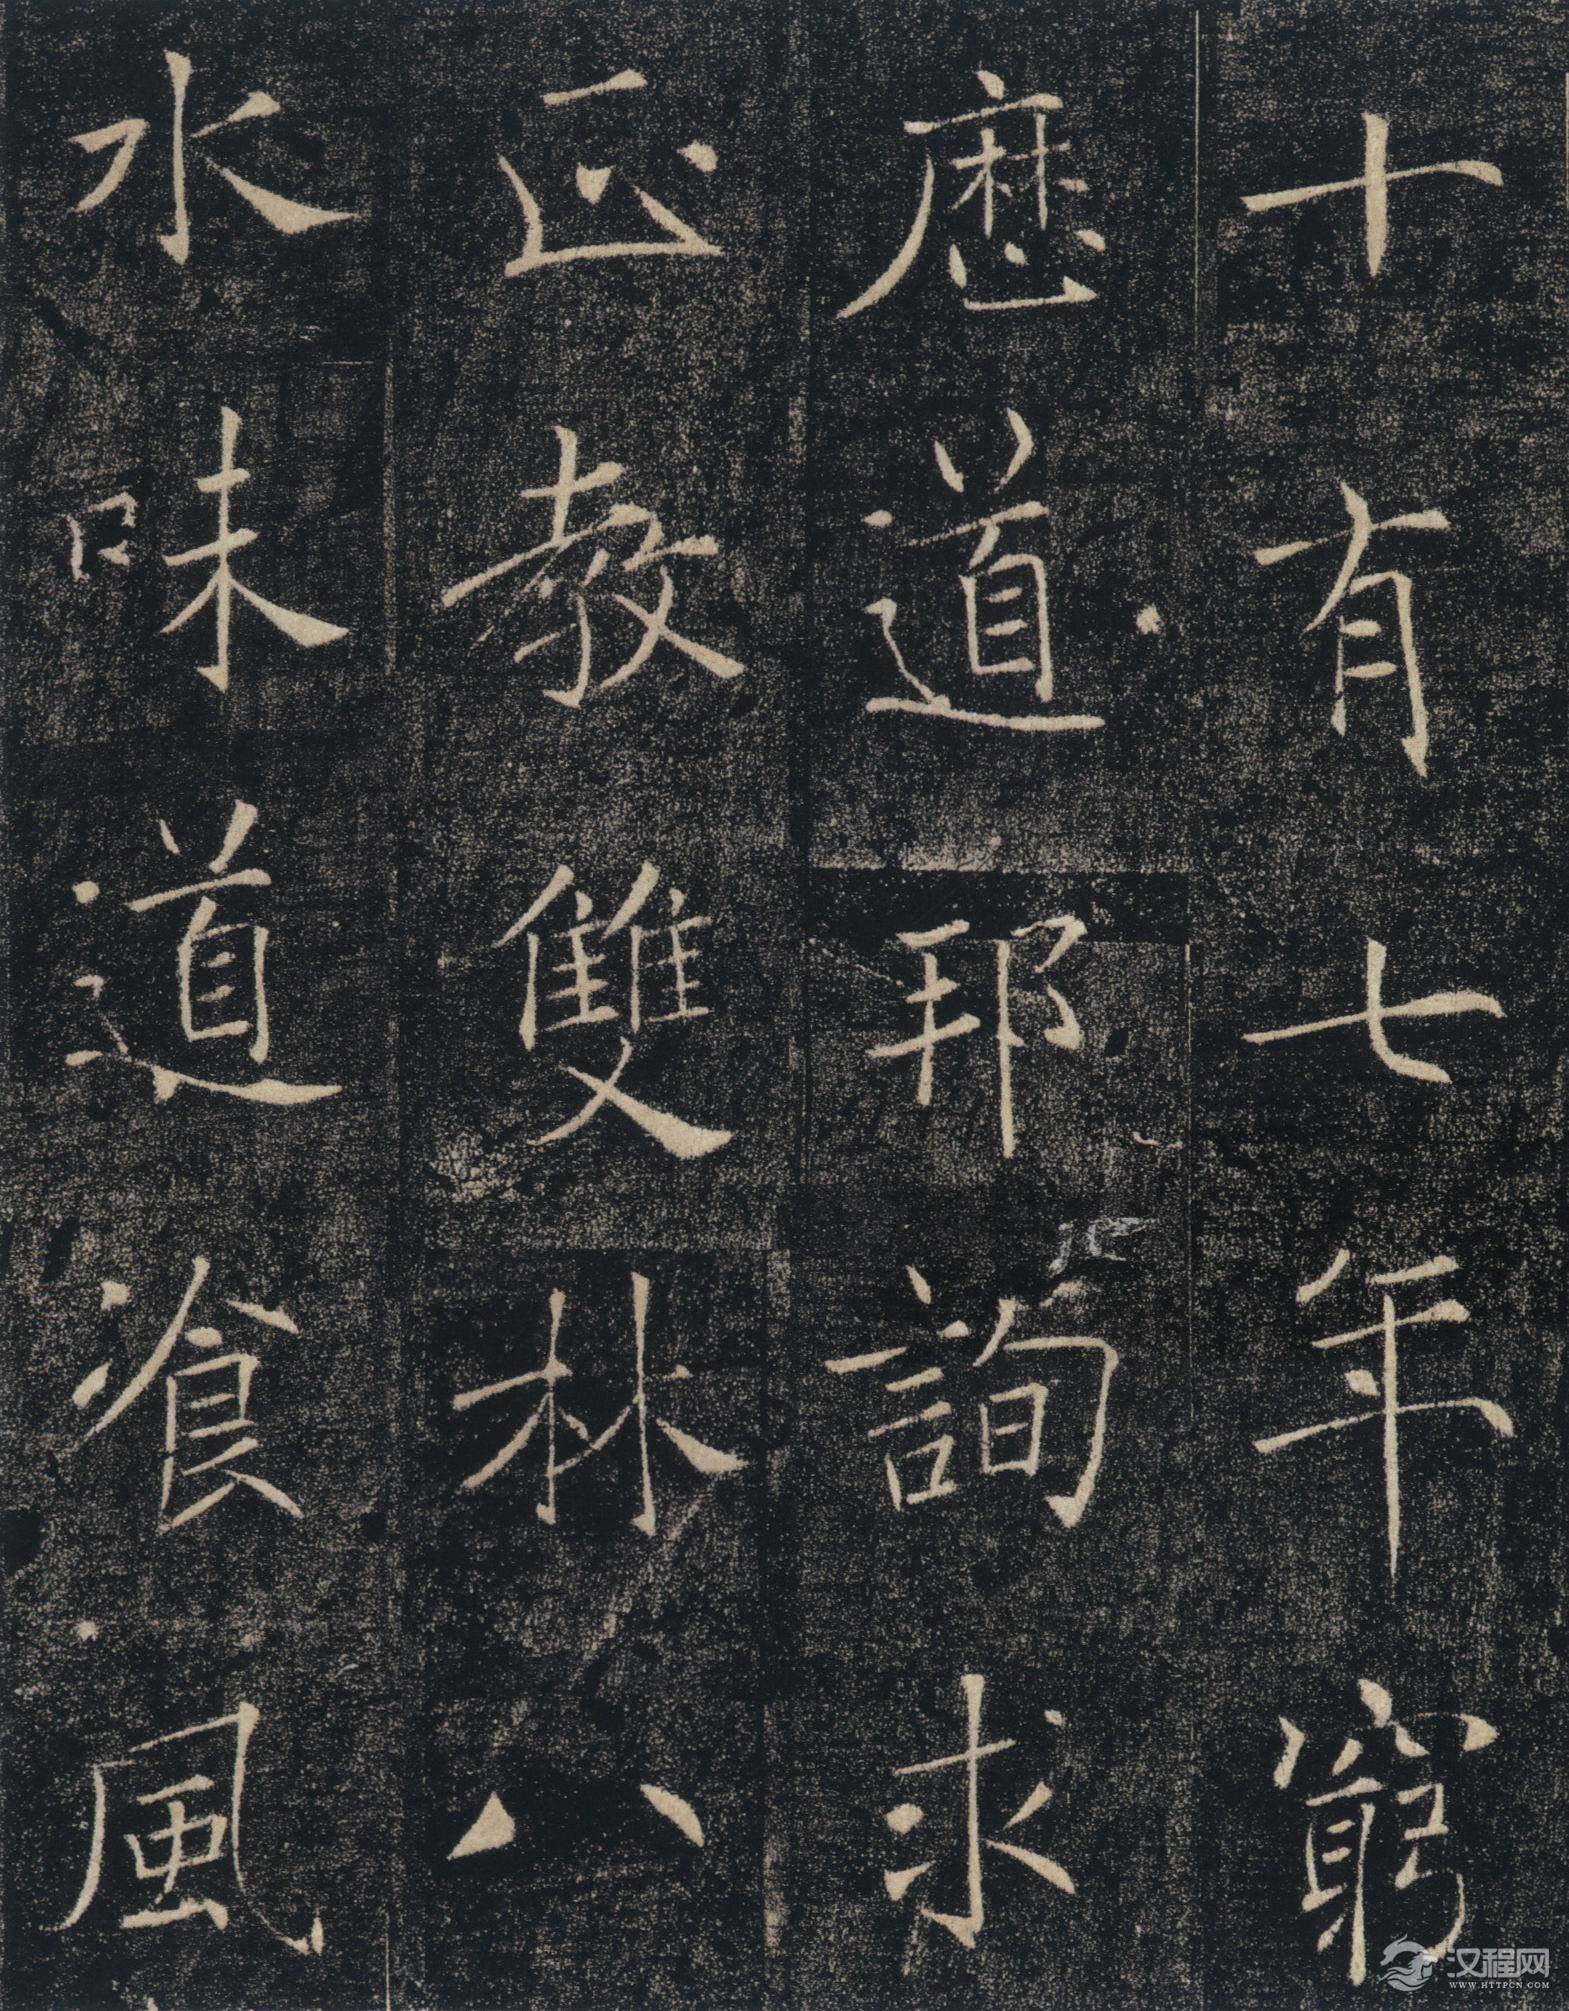 十有七年窮
歷道邦詢求
正教雙林八
水味道飡風
汉程网
WWW.HTTPCN.COM